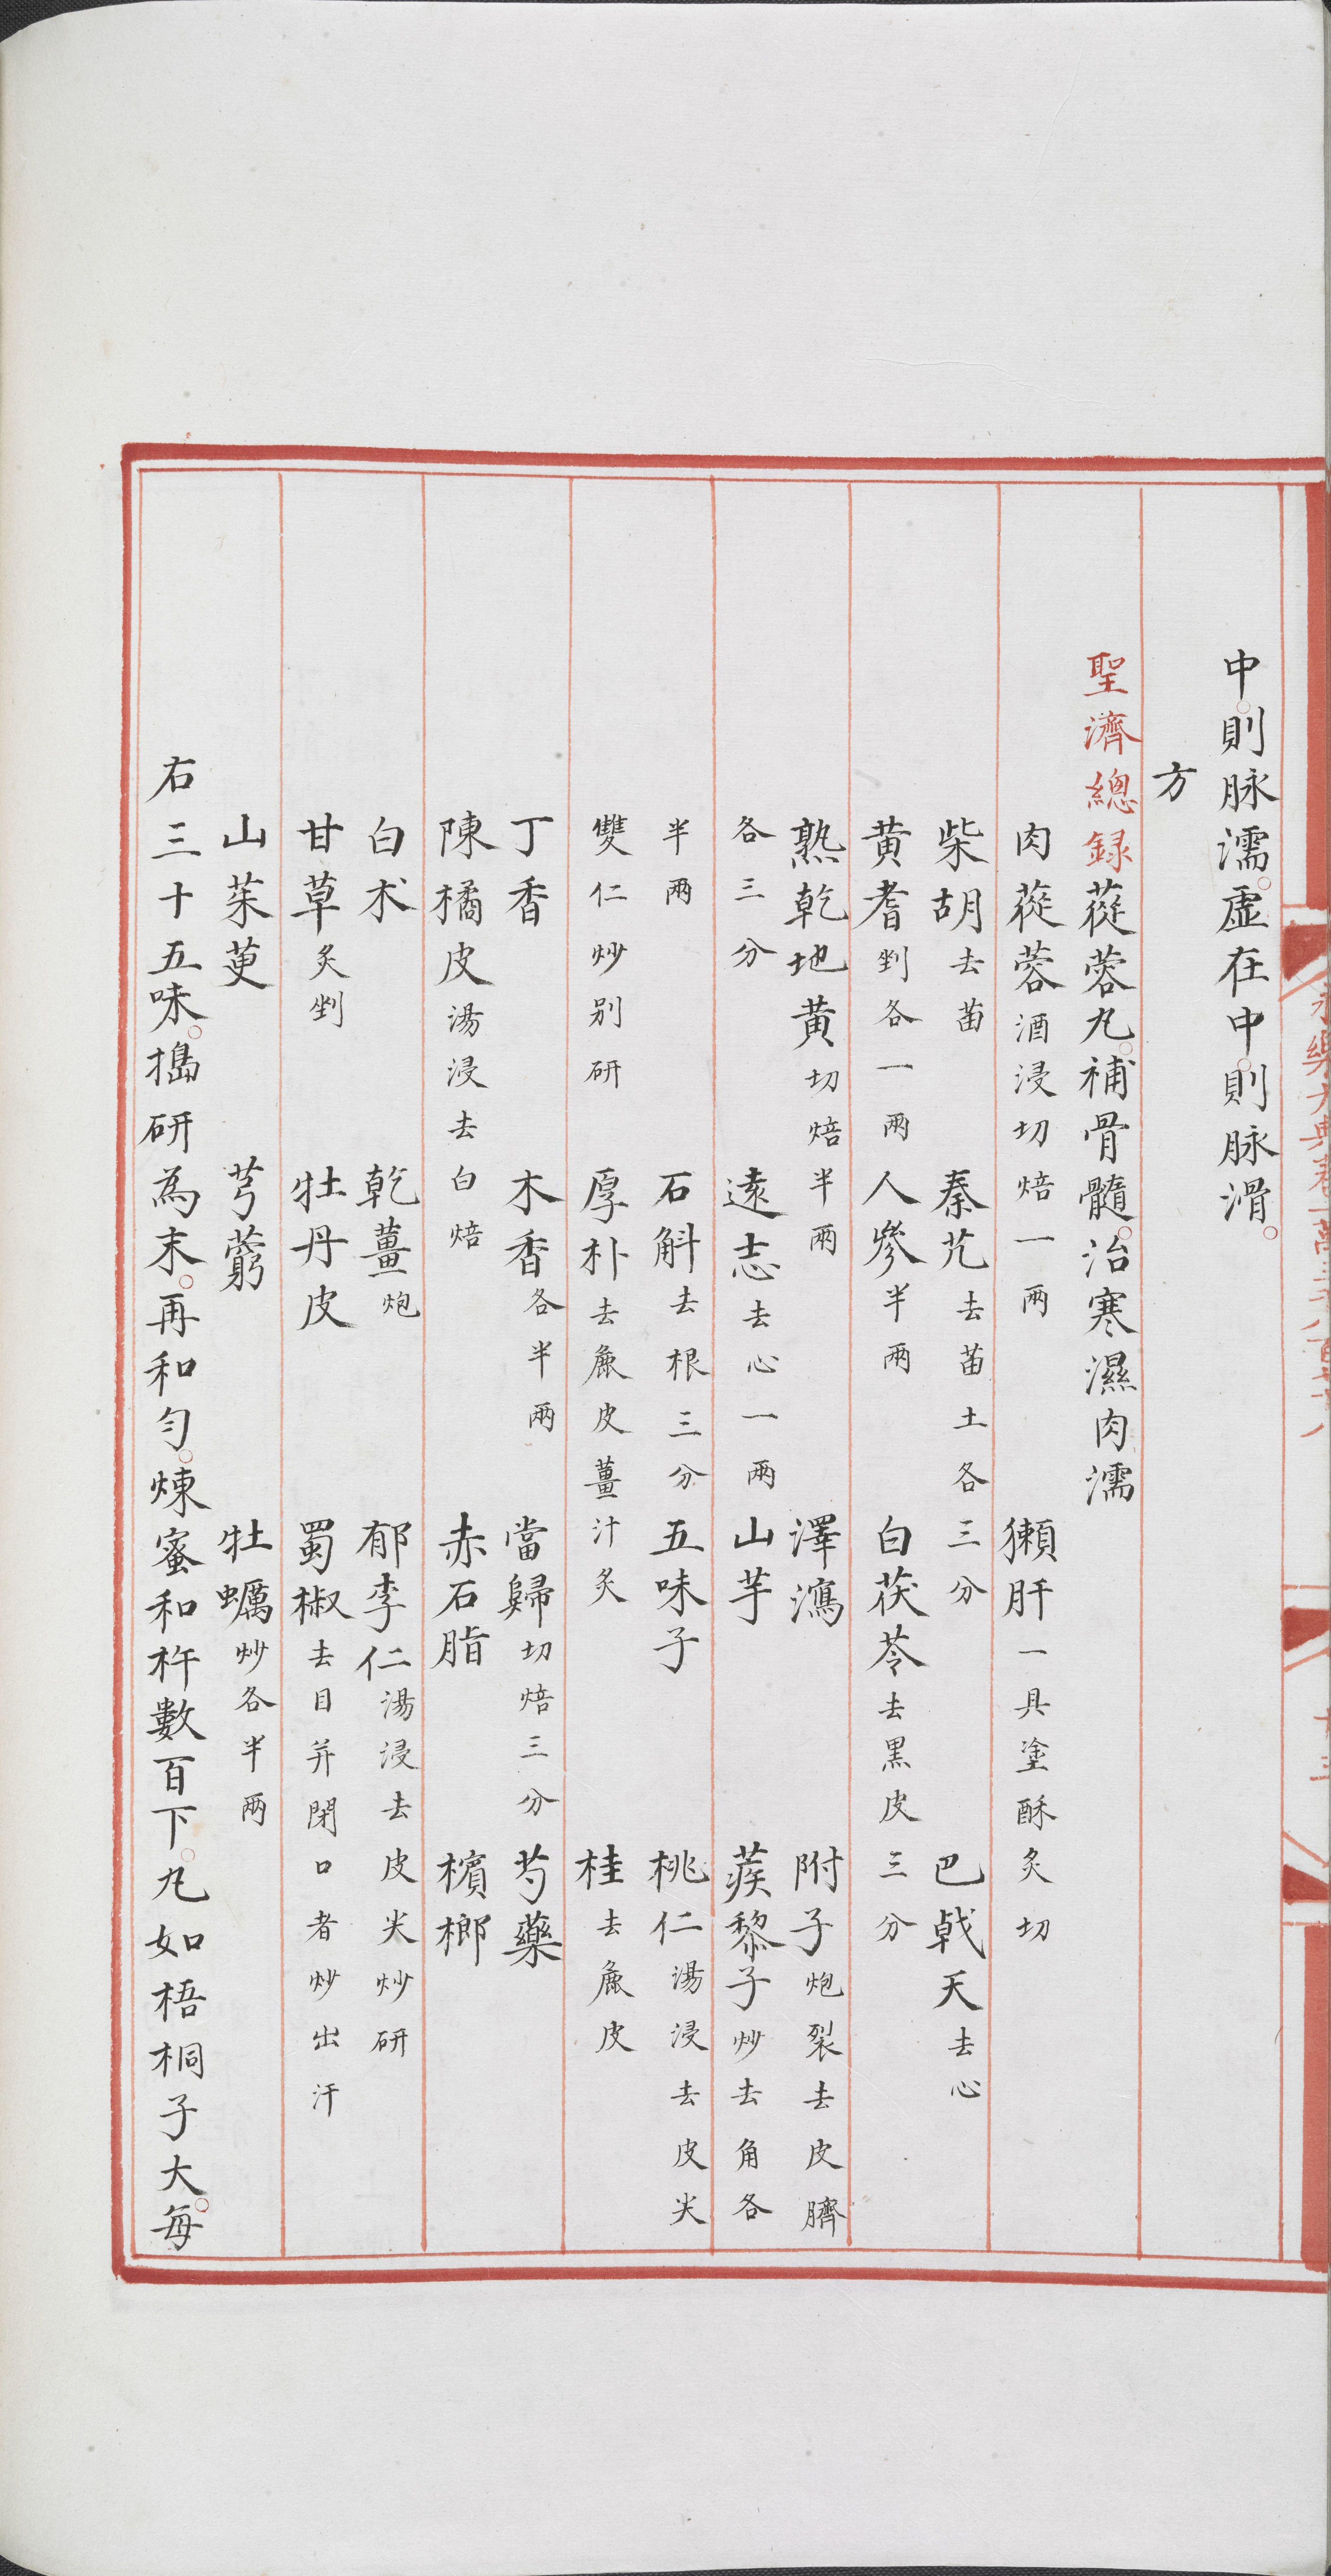 中則脉濡虛在中則脉滑
方
聖濟總録蓯蓉丸補骨髓治寒濕肉濡
肉蓯蓉酒浸切焙一兩 獺肝一具塗酥炙切
柴胡去苗 秦艽去苗土各三分 巴戟天去心
黄耆剉各一兩 人參半兩 白茯苓去黒皮三分
熟乾地黄切焙半兩 澤瀉 附子炮裂去皮臍
各三分 遠志去心一兩 山芋 蒺藜子炒去角各
半兩 石斛去根三分 五味子 桃仁湯浸去皮尖
雙仁炒别研 厚朴去麄皮薑汁炙 桂去麄皮
丁香 木香各半兩 當歸切焙三分 芍藥
陳橘皮湯浸去白焙 赤石脂 檳榔
白朮 乾薑炮 郁李仁湯浸去皮尖炒研
甘草炙剉 牡丹皮 蜀椒去目并閉口者炒出汗
山茱萸 芎藭 牡蠣炒各半兩
右三十五味擣研為末再和匀煉蜜和杵數百下丸如梧桐子大每